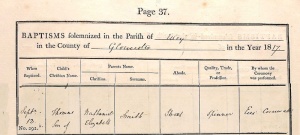 Page 37.
BAPTISMS solemnized in the Parish of Uley
in the County of Gloucester in the Year 1817
When Baptized.
Child's Christian Name.
Parents Name.
Christian.
Surname.
Abode.
Quality, Trade, or Profession.
By whom the Ceremony was performed.
Sept.
No. 292.
Thomas Son of
Nathaniel Elizabeth
Smith
Spinner